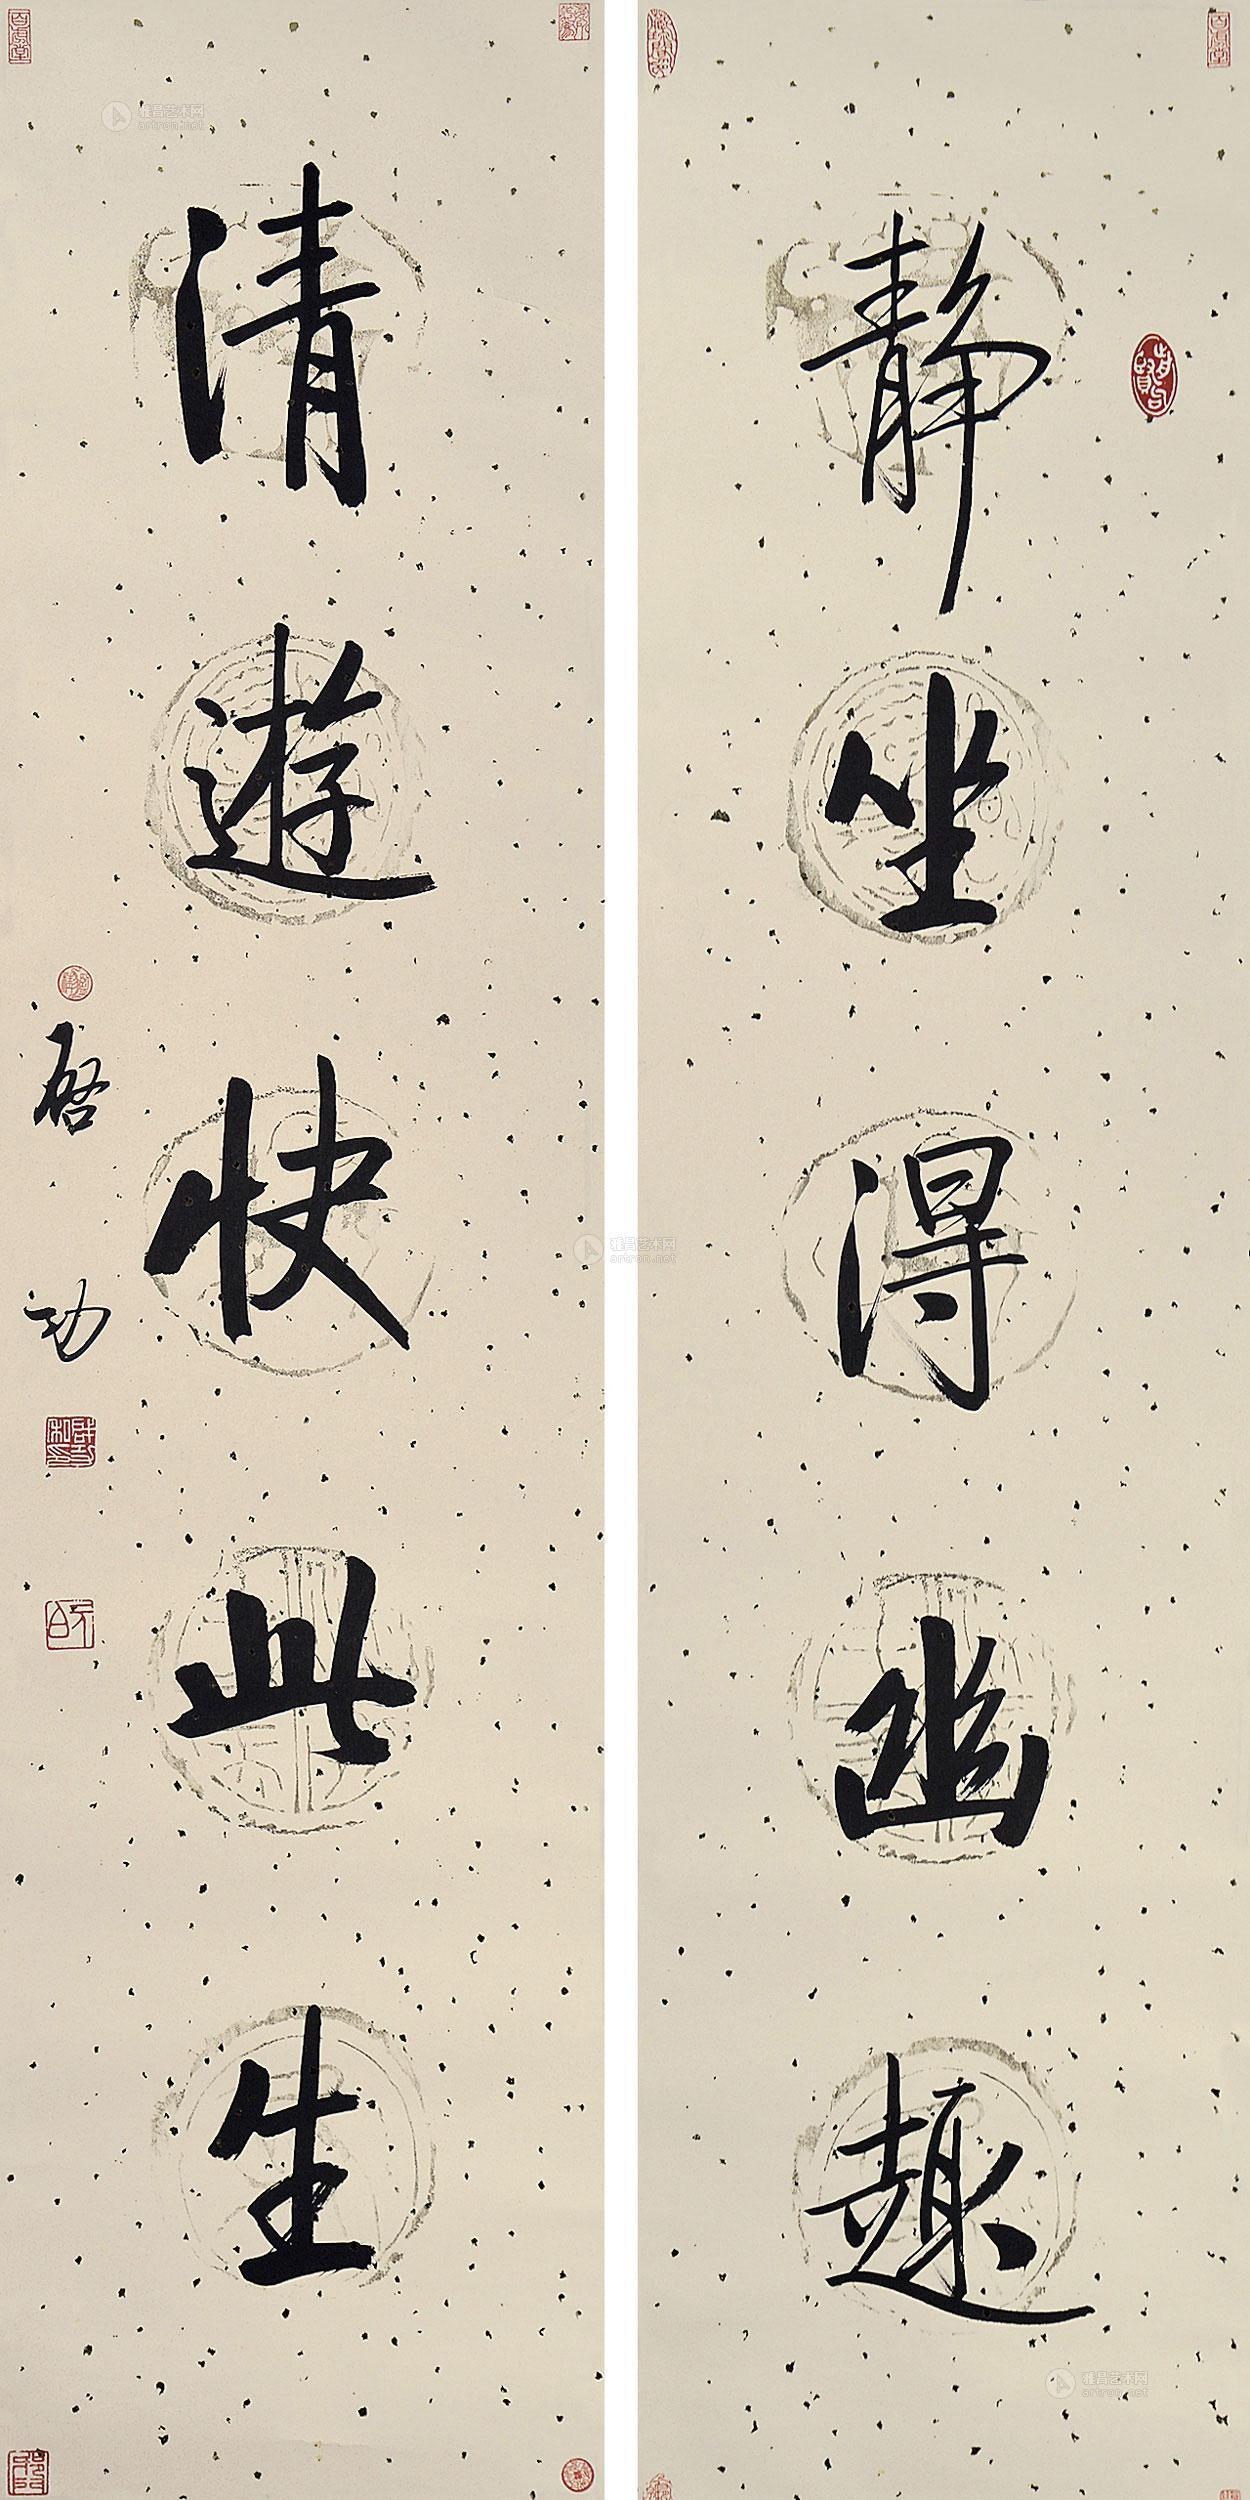 静坐得幽趣
清遊快此生
启功
雅昌艺术网
artron.net
雅昌艺术网
artron.net
雅昌艺术网
artron.net